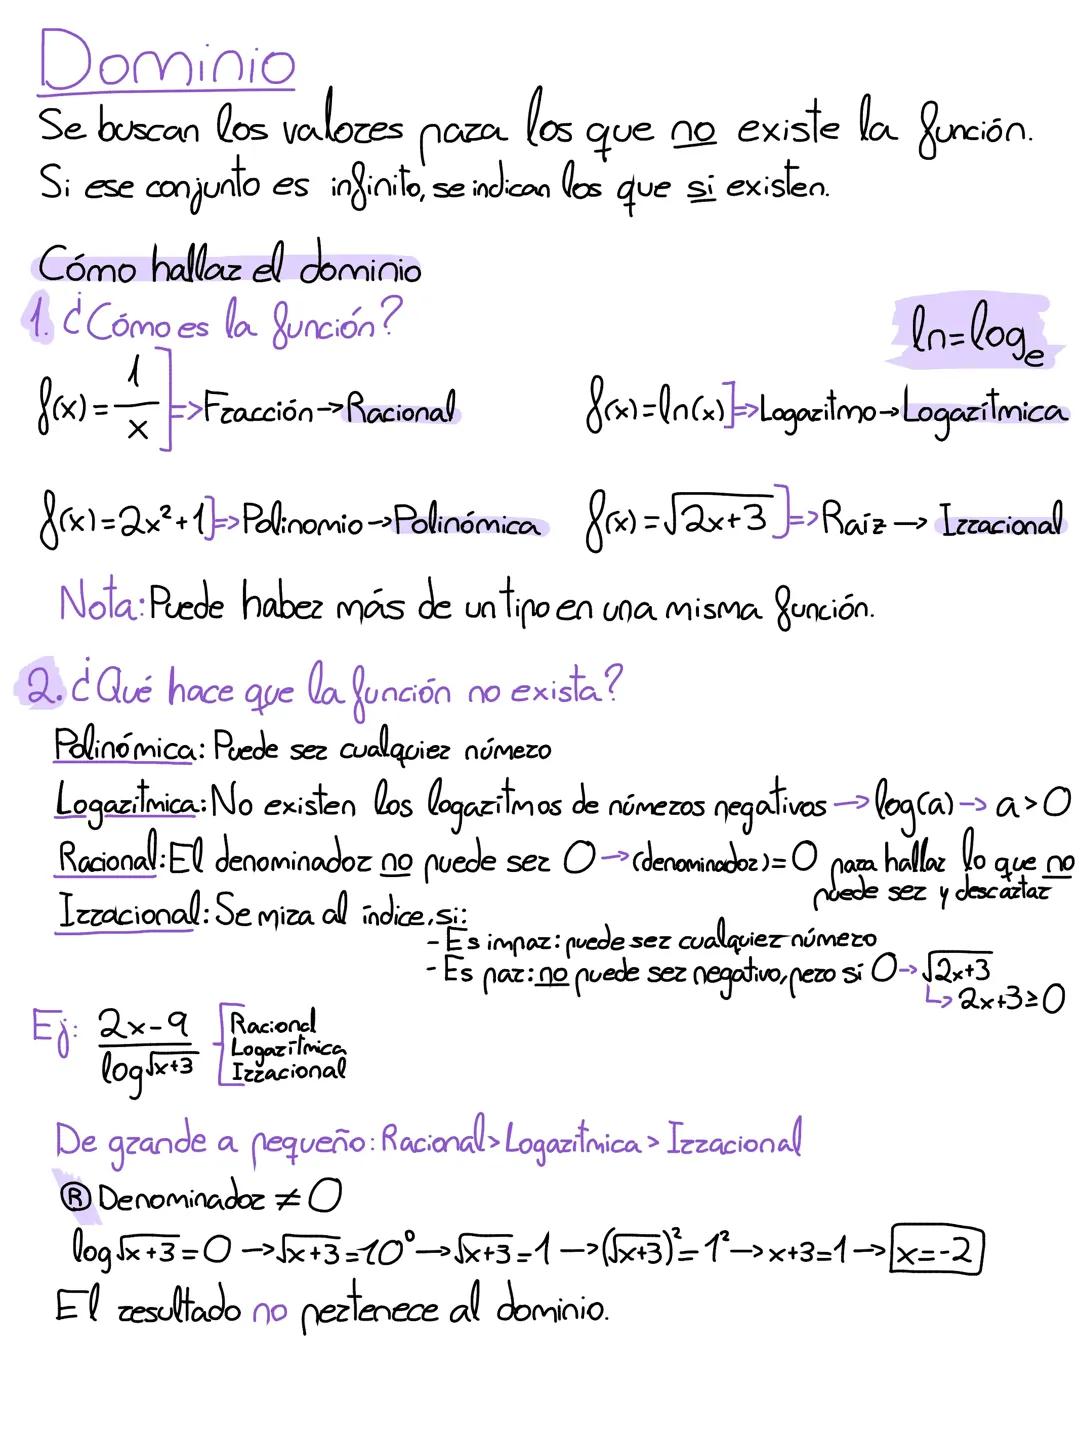 Dominio
Se buscan los valores para los que no existe la función.
Si ese conjunto es infinito, se indican los que sí existen.
Cómo hallar el dominio
1. ¿Cómo es la función?
ln=logₑ
f(x)=1/x => Fracción → Racional
f(x)=ln(x) => Logaritmo → Logarítmica
f(x)=2x²+1 => Polinomio → Polinómica
f(x)=√(2x+3) => Raíz → Irracional
Nota: Puede haber más de un tipo en una misma función.
2. ¿Qué hace que la función no exista?
Polinómica: Puede ser cualquier número
Logarítmica: No existen los logaritmos de números negativos → log(a) → a>0
Racional: El denominador no puede ser 0 → (denominador)=0 para hallar lo que no
puede ser y descartar
Irracional: Se mira al índice, si:
- Es impar: puede ser cualquier número
- Es par: no puede ser negativo, pero sí 0 → √(2x+3)
↳ 2x+3≥0
Ej: (2x-9)/(log√(x+3))
Racional
Logarítmica
Irracional
De grande a pequeño: Racional > Logarítmica > Irracional
Ⓡ Denominador ≠ 0
log√(x+3)=0 → √(x+3)=10⁰ → √(x+3)=1 → (√(x+3))²=1² → x+3=1 → x=-2
El resultado no pertenece al dominio.